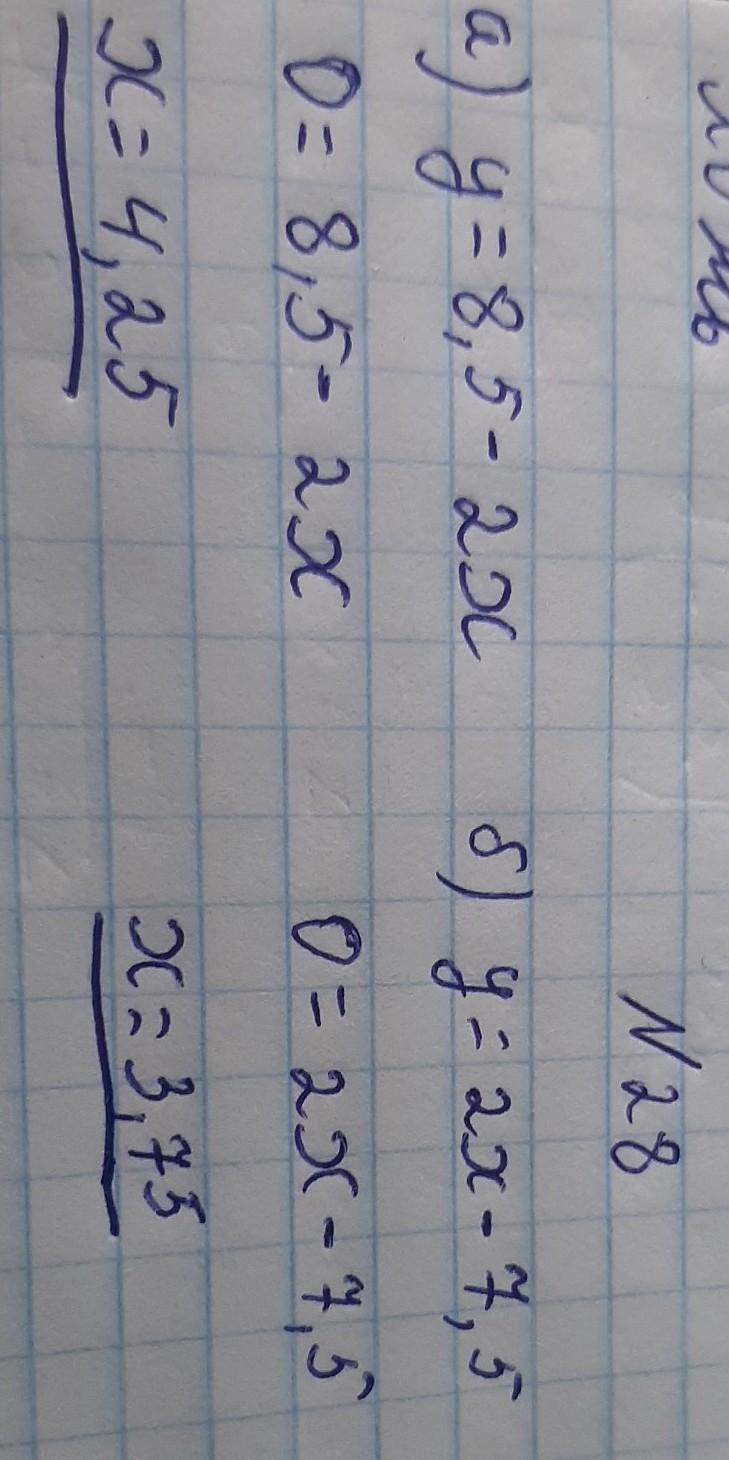 N 28
а) y = 8,5 - 2x
0 = 8,5 - 2x
x = 4,25
б) y = 2x - 7,5
0 = 2x - 7,5
x = 3,75